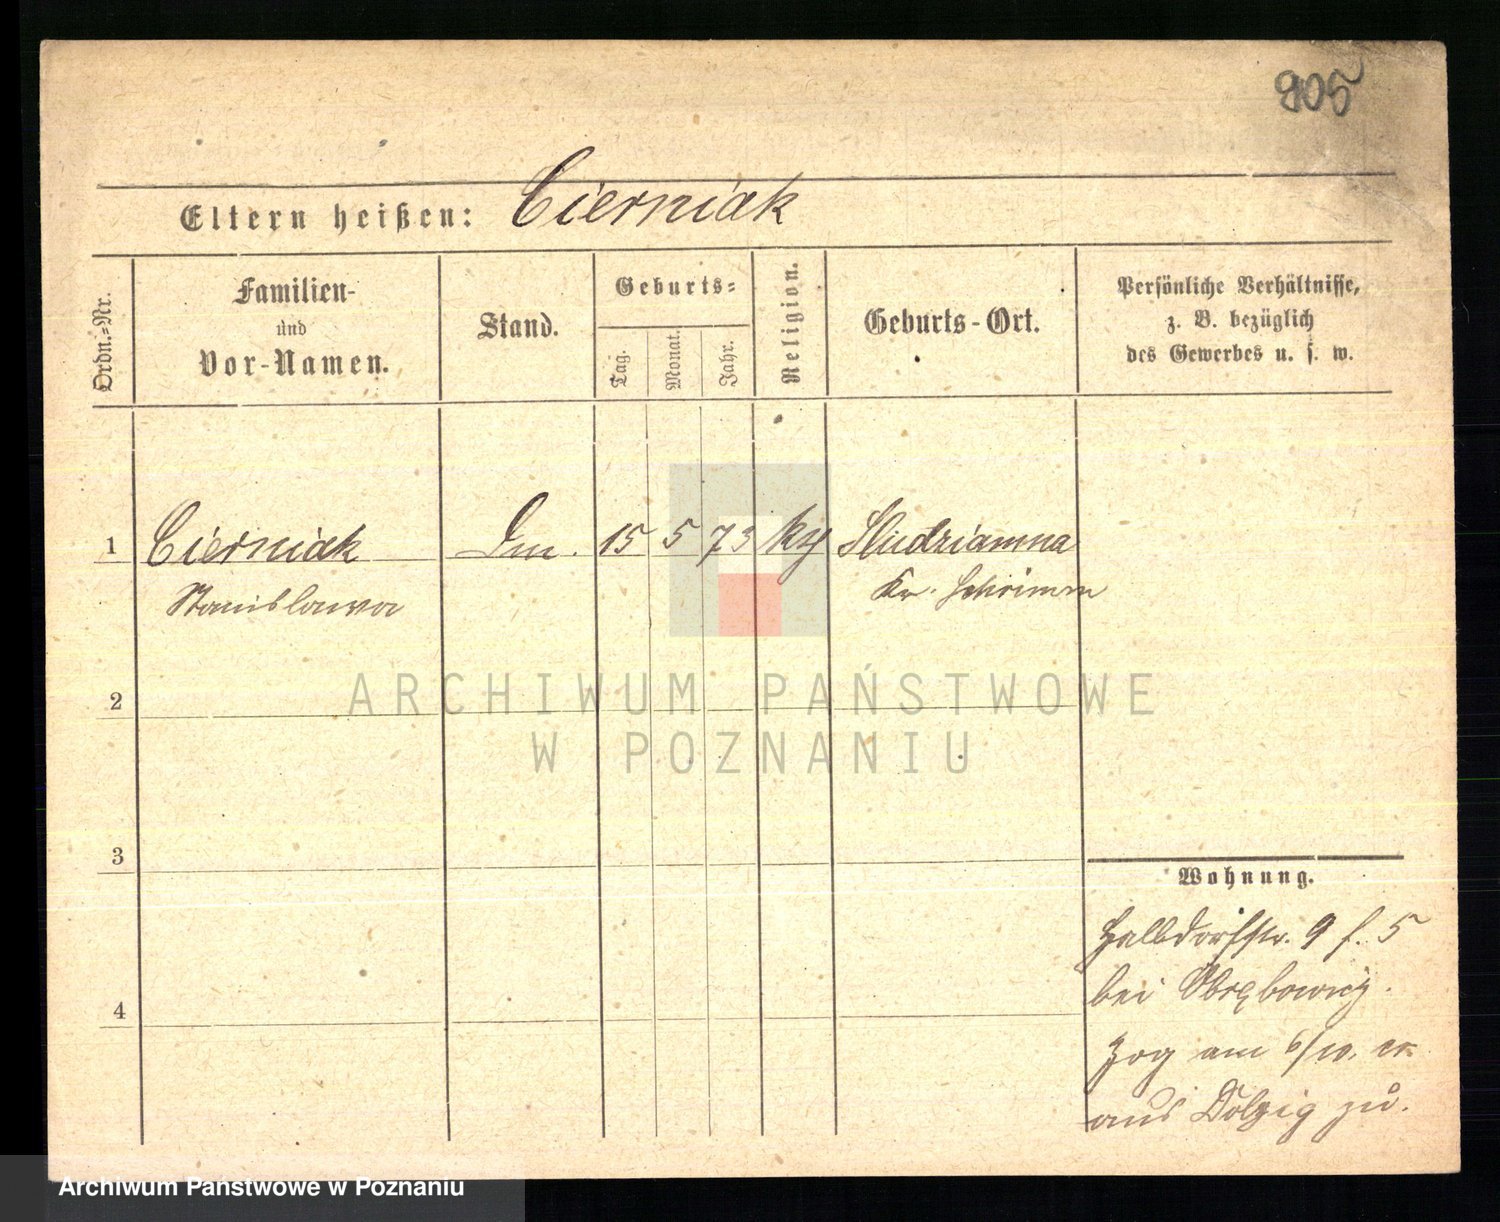 905
Eltern heißen: Cierniak
Ordn.-Nr.
Familien-
und
Vor-Namen.
Stand.
Geburts-
Tag.
Monat.
Jahr.
Religion.
Geburts-Ort.
Persönliche Verhältnisse,
z. B. bezüglich
des Gewerbes u. s. w.
1 Cierniak 15 5 73
Stanislawa Kr. Schrimm
2
3
4
Wohnung.
Halbdorfstr. 9 5
bei
Zog am 6/10. cr.
aus Dolzig zu.
ARCHIWUM PAŃSTWOWE
W POZNANIU
Archiwum Państwowe w Poznaniu